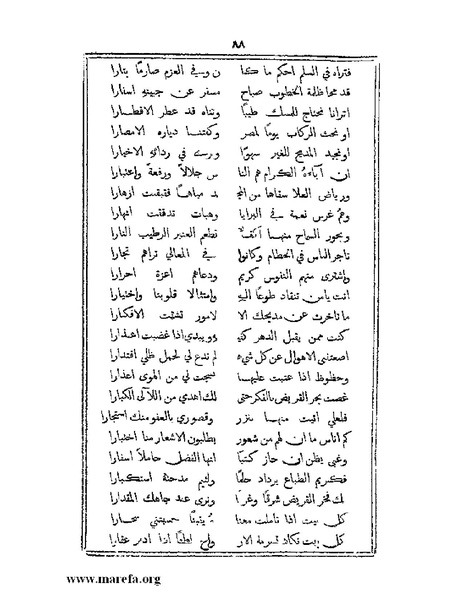 ٨٨
فتراه في السلم احكم ما كنا ن وفي العزم صارمًا بتارا
قد محا ظلمة الخطوب صباح مسفر عن جبينهِ اسفارا
اترانا نحتاج للمسك طيبًا وثناه قد عطر الاقطارا
او نحث الركاب يومًا لمصر وكفتنا دياره الامصارا
او نجيد المديح للغير سهوًا ونرى في ردائهِ الاخيارا
ان آباءهُ الكرام هم النا س جلالاً ورفعةً واعتبارا
ورياض العلا سقاها من المجـ د مياهًا ففتقت ازهارا
وهمُ غرس نعمة في البرايا وهبات تدفقت انهارا
وبحور السماح منها اكفٌ تطعم العنبر الرطيب النارا
تاجر الناس في الحطام وكانوا في المعالي تراهم تجارا
واشترى منهم النفوس كريم ودعاهم اعزة احرارا
انت يا من تنقاد طوعًا اليهِ وامتثالا قلوبنا واختيارا
ما تاخرت عن مديحك الا لامور تشتت الافكارا
كنت ممن يقبل الدهر كفيـ ويبدي اذا غضبت اعتذارا
اضعفتني الاهوال عن كل شيء لم تدع لي لحمل ظلي اقتدارا
وحظوظ اذا عتبت عليها نسجت لي من الهوى اعذارا
غصت بحر القريض بالفكر حتى لك اهدي من اللآلي الكبارا
فلعلي اتيت منها بنزر وقصوري بالعفو منك استجارا
كم اناس ما ان لهم من شعور يطلبون الاشعار منا اختبارا
وغبي يظن ان حاز كتبًا انها الفضل حاملاً اسفارا
فكريم الطباع يزداد حلمًا ولئيم مدحتهُ استكبارا
لك فخر القريض شرقًا وغربًا ونرى عند جاهك المقدارا
كل بيت اذا تاملت معنا هُ يقينًا حسبتني سحارا
كل بيت تكاد تسرع الار واح لطفًا اذا ادير عقارا
www.marefa.org